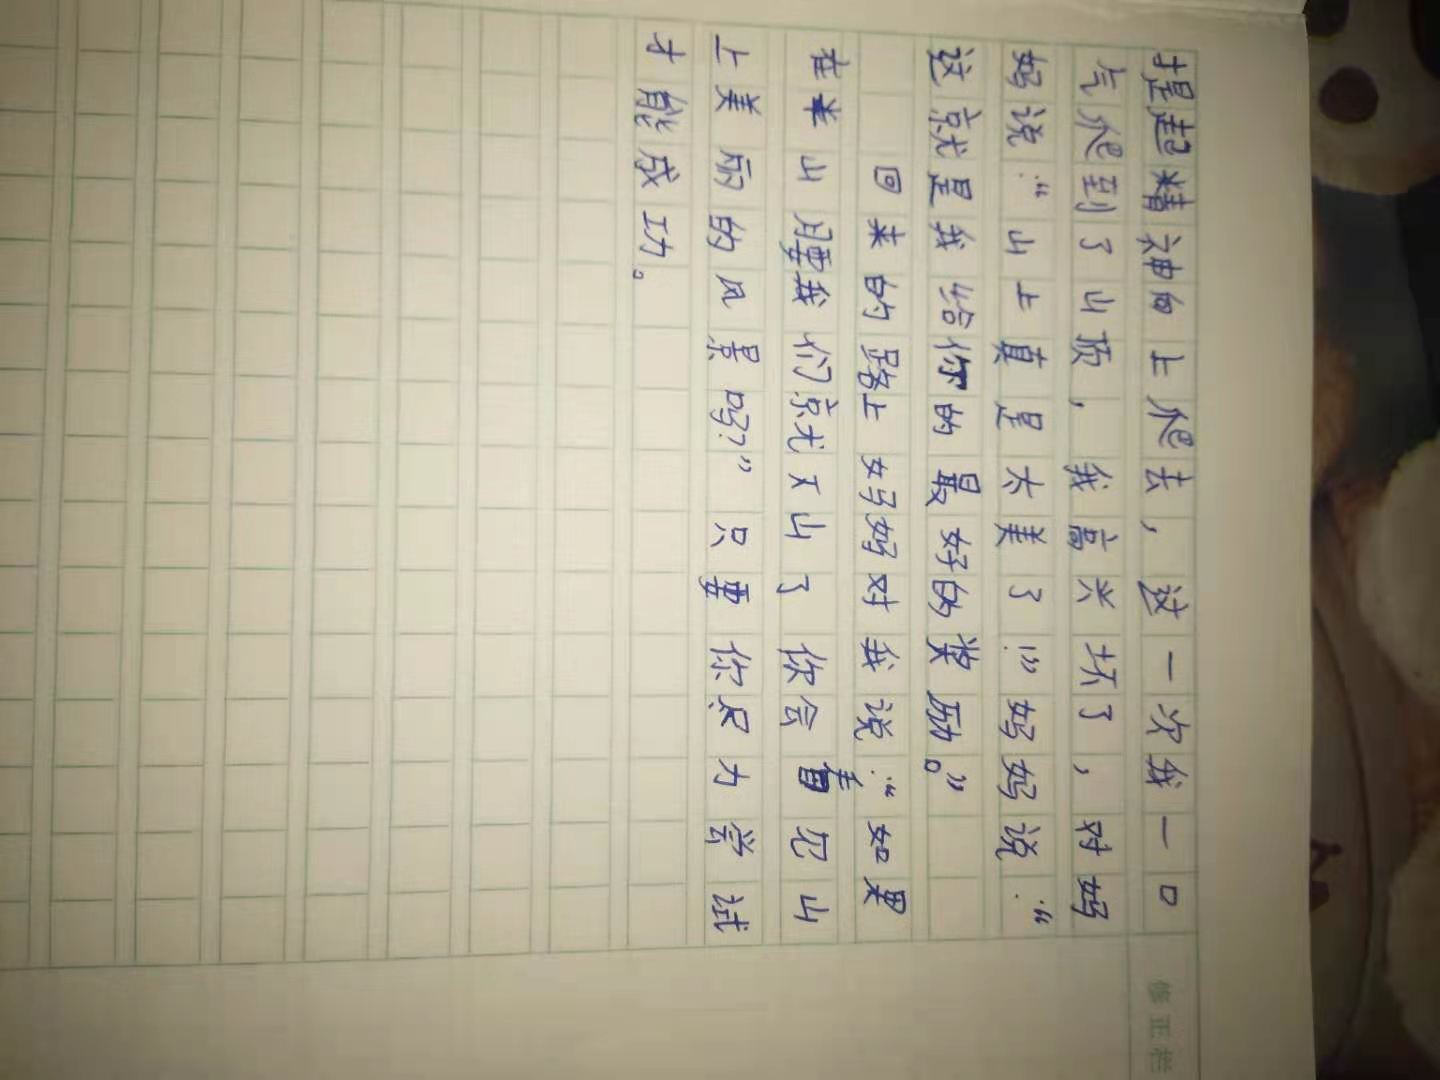 提起精神向上爬去，这一次我一口
气爬到了山顶，我高兴坏了，对妈
妈说：“山上真是太美了！”妈妈说：“
这就是我给你的最好的奖励。”
回来的路上妈妈对我说：“如果
在半山腰我们就下山了你会看见山
上美丽的风景吗？”只要你尽力尝试
才能成功。
修正栏